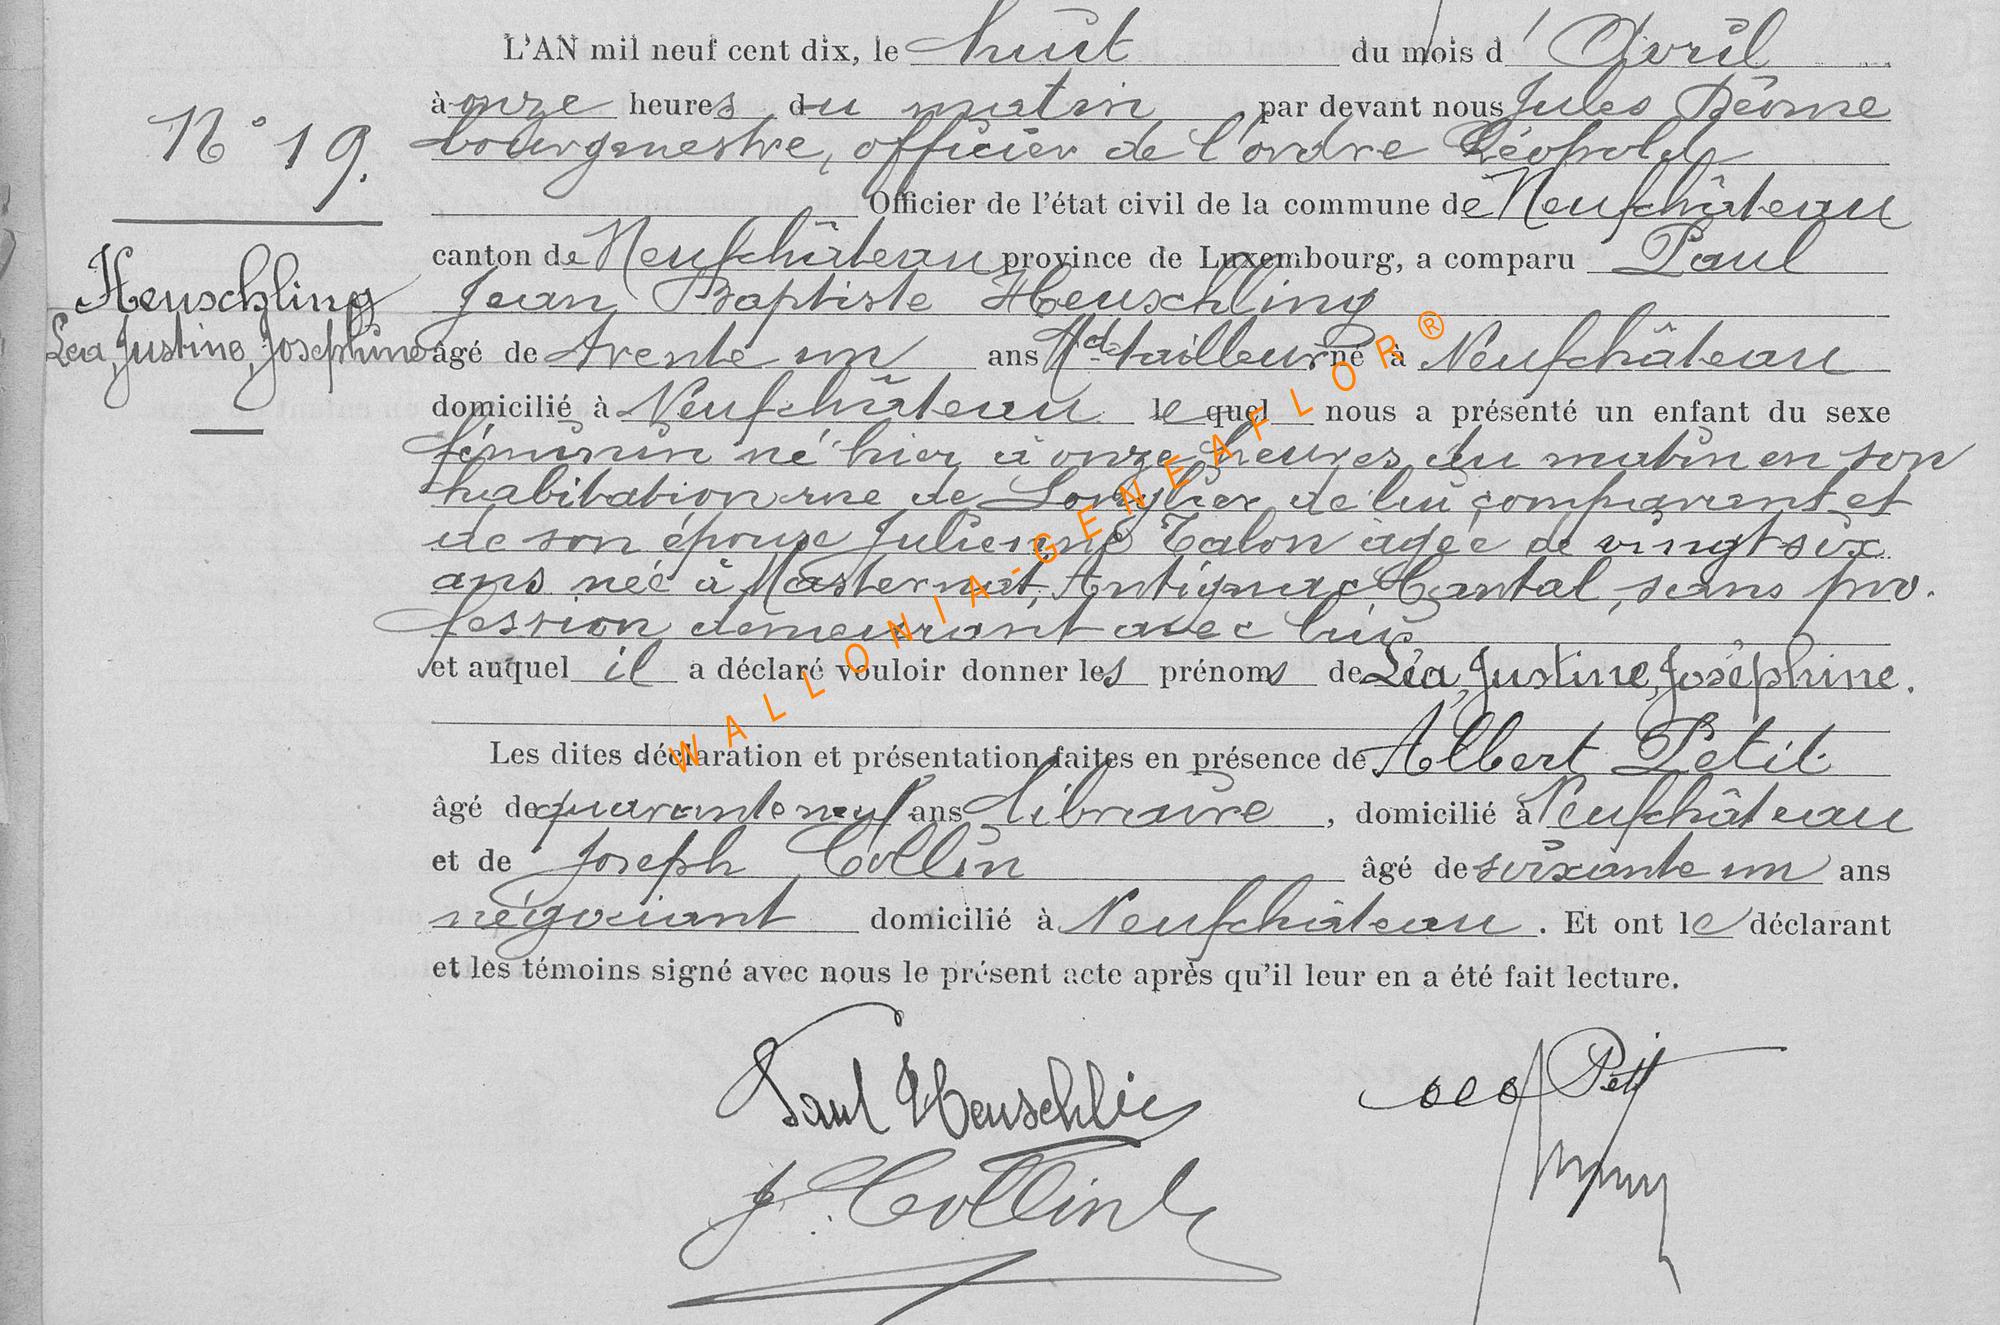 L'AN mil neuf cent dix, le huit du mois d'Avril
à onze heures du matin par devant nous Jules
bourgmestre, officier de l'ordre Léopold
N° 19.
Officier de l'état civil de la commune de Neufchâteau
canton de Neufchâteau province de Luxembourg, a comparu Paul
Heuschling
Léa, Justine, Joséphine
Jean Baptiste Heuschling
âgé de trente un ans Md tailleur né à Neufchâteau
domicilié à Neufchâteau lequel nous a présenté un enfant du sexe
féminin né hier à onze heures du matin en son
habitation rue de Longlier de lui comparant et
de son épouse Julienne Talon âgée de vingt six
ans née à Antignac Cantal, sans pro.
fession demeurant avec lui
et auquel il a déclaré vouloir donner les prénoms de Léa, Justine, Joséphine.
Les dites déclaration et présentation faites en présence de Albert Petit
âgé de quarante neuf ans libraire, domicilié à Neufchâteau
et de Joseph Collin âgé de soixante un ans
négociant domicilié à Neufchâteau. Et ont le déclarant
et les témoins signé avec nous le présent acte après qu'il leur en a été fait lecture.
Paul Heuschling
Petit
J. Collin
WALLONIA-GENEAFLOR®